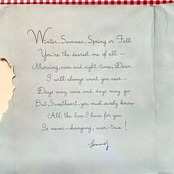 Winter, Summer, Spring or Fall
You're the dearest one of all —
Morning, noon and night-time, Dear
I will always want you near —
Days may come and days may go
But, Sweetheart, you must surely know
All the love I have for you
Is never-changing, ever-true!